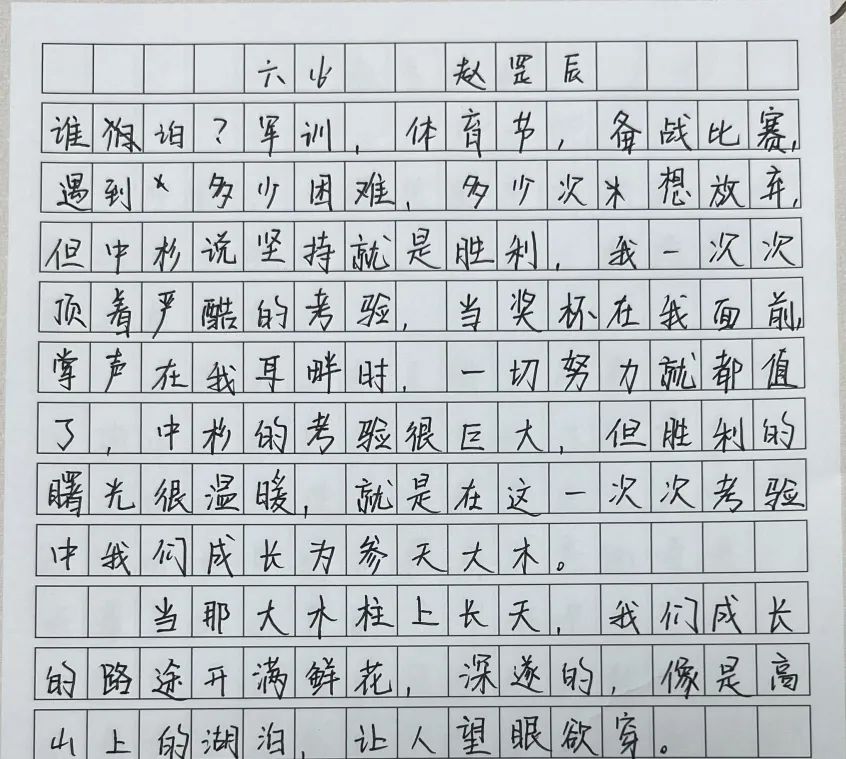 六 赵罡辰
谁怕?军训,体育节,备战比赛,
遇到多少困难,多少次想放弃,
但中杉说坚持就是胜利,我一次次
顶着严酷的考验,当奖杯在我面前,
掌声在我耳畔时,一切努力就都值
了,中杉的考验很巨大,但胜利的
曙光很温暖,就是在这一次次考验
中我们成长为参天大木。
当那大木柱上长天,我们成长
的路途开满鲜花,深邃的,像是高
山上的湖泊,让人望眼欲穿。